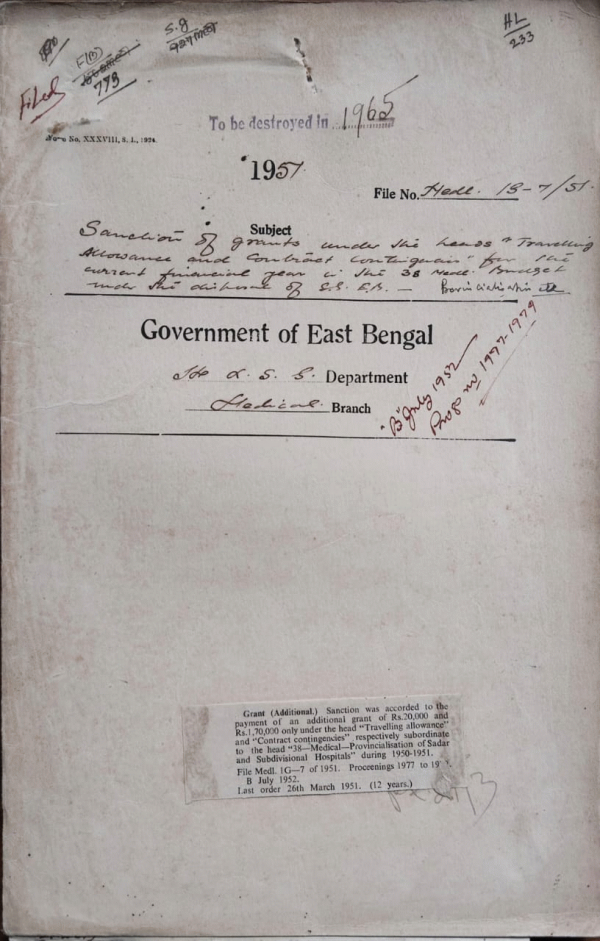 HL
233
S.g
F(B)
773
Filed
Form No, XXXVIII, S. I., 1924.
To be destroyed in 1965
1951
File No. Medl. 1G-7/51.
Subject
Sanction of grants under the heads "Travelling
Allowance and Contract Contingencies" for the
current financial year in the 38 Medl. Budget
under the disbursal of S.G. E.B. —
Government of East Bengal
H & L. S. G. Department
Medical Branch
"B" July 1952
Progs no 1977-1979
Grant (Additional.) Sanction was accorded to the
payment of an additional grant of Rs.20,000 and
Rs.1,70,000 only under the head "Travelling allowance"
and "Contract contingencies" respectively subordinate
to the head "38—Medical—Provincialisation of Sadar
and Subdivisional Hospitals" during 1950-1951.
File Medl. 1G—7 of 1951. Proceenings 1977 to
B July 1952.
Last order 26th March 1951. (12 years.)